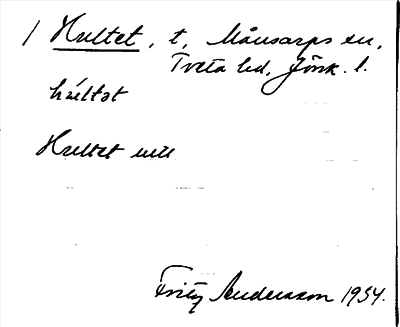 1 Hultet, t, Månsarps sn,
Tveta hd, Jönk. l.
húltət
Hultet
Fritz Andersson 1934.